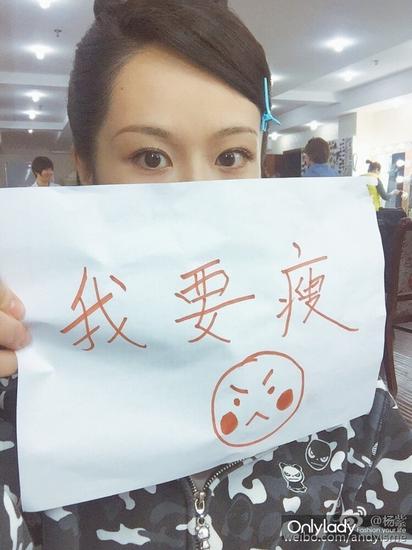 我要瘦
@杨紫
Onlylady
Fashion your life
weibo.com/andyisme